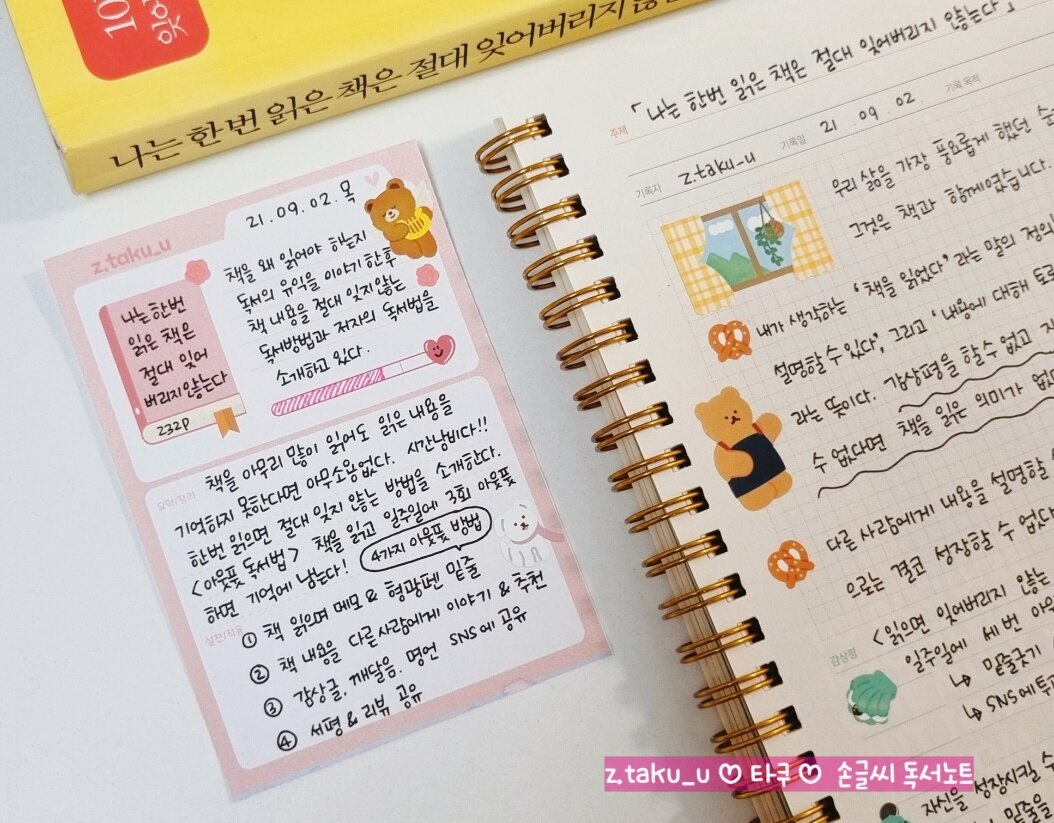 나는 한 번 읽은 책은 절대 잊어버리지
z.taku_u
21.09.02.목
나는 한번
읽은 책은
절대 잊어
버리지 않는다
232P
책을 왜 읽어야 하는지
독서의 유익을 이야기 한 후
책 내용을 절대 잊지 않는
독서방법과 저자의 독서법을
소개하고 있다.
요약/정리
책을 아무리 많이 읽어도 읽은 내용을
기억하지 못한다면 아무소용없다. 시간낭비다!!
한번 읽으면 절대 잊지 않는 방법을 소개한다.
<아웃풋 독서법> 책을 읽고 일주일에 3회 아웃풋
하면 기억에 남는다! 4가지 아웃풋 방법
실천/적용
① 책 읽으며 메모 & 형광펜 밑줄
② 책 내용을 다른사람에게 이야기 & 추천
③ 감상글, 깨달음, 명언 SNS에 공유
④ 서평 & 리뷰 공유
주제 「나는 한번 읽은 책은 절대 잊어버리지 않는다」
기록자 z.taku_u 기록일 21.09.02. 기록 목적
우리 삶을 가장 풍요롭게 했던
그것은 책과 함께였습니다.
내가 생각하는 '책을 읽었다'라는 말의 정의
설명할 수 있다', 그리고 '내용에 대해
라는 뜻이다. 감상평을 할 수 없고
수 없다면 책을 읽은 의미가
다른 사람에게 내용을 설명할
으로는 결코 성장할 수 없다
감상평
<읽으면 잊어버리지 않는
일주일에 세 번
↳ 밑줄긋기
↳ SNS에
자신을 성장시킬
밑줄을
z.taku_u ♡ 타쿠 ♡ 손글씨 독서노트